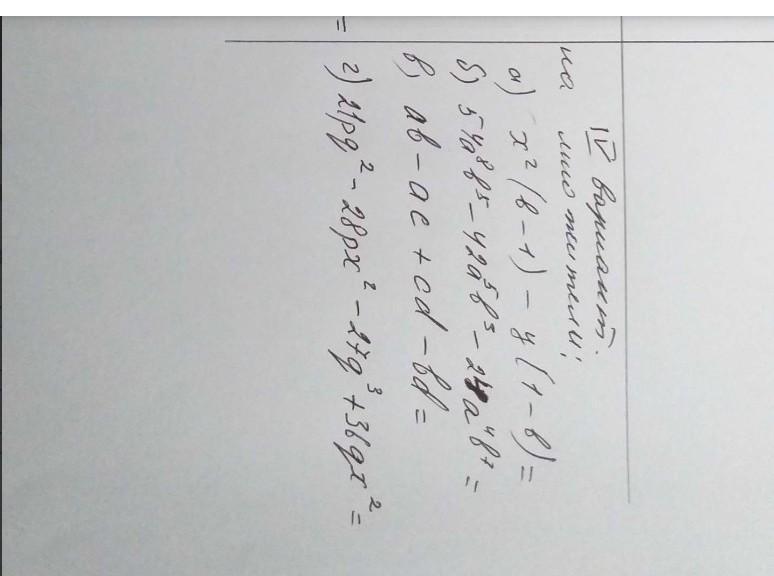 IV вариант.
на множители:
а) x²(b-1) - y(1-b) =
б) 54a⁸b⁵ - 42a⁵b³ - 24a⁴b⁷ =
в) ab - ac + cd - bd =
г) 21pq² - 28px² - 27q³ + 36qx² =
=